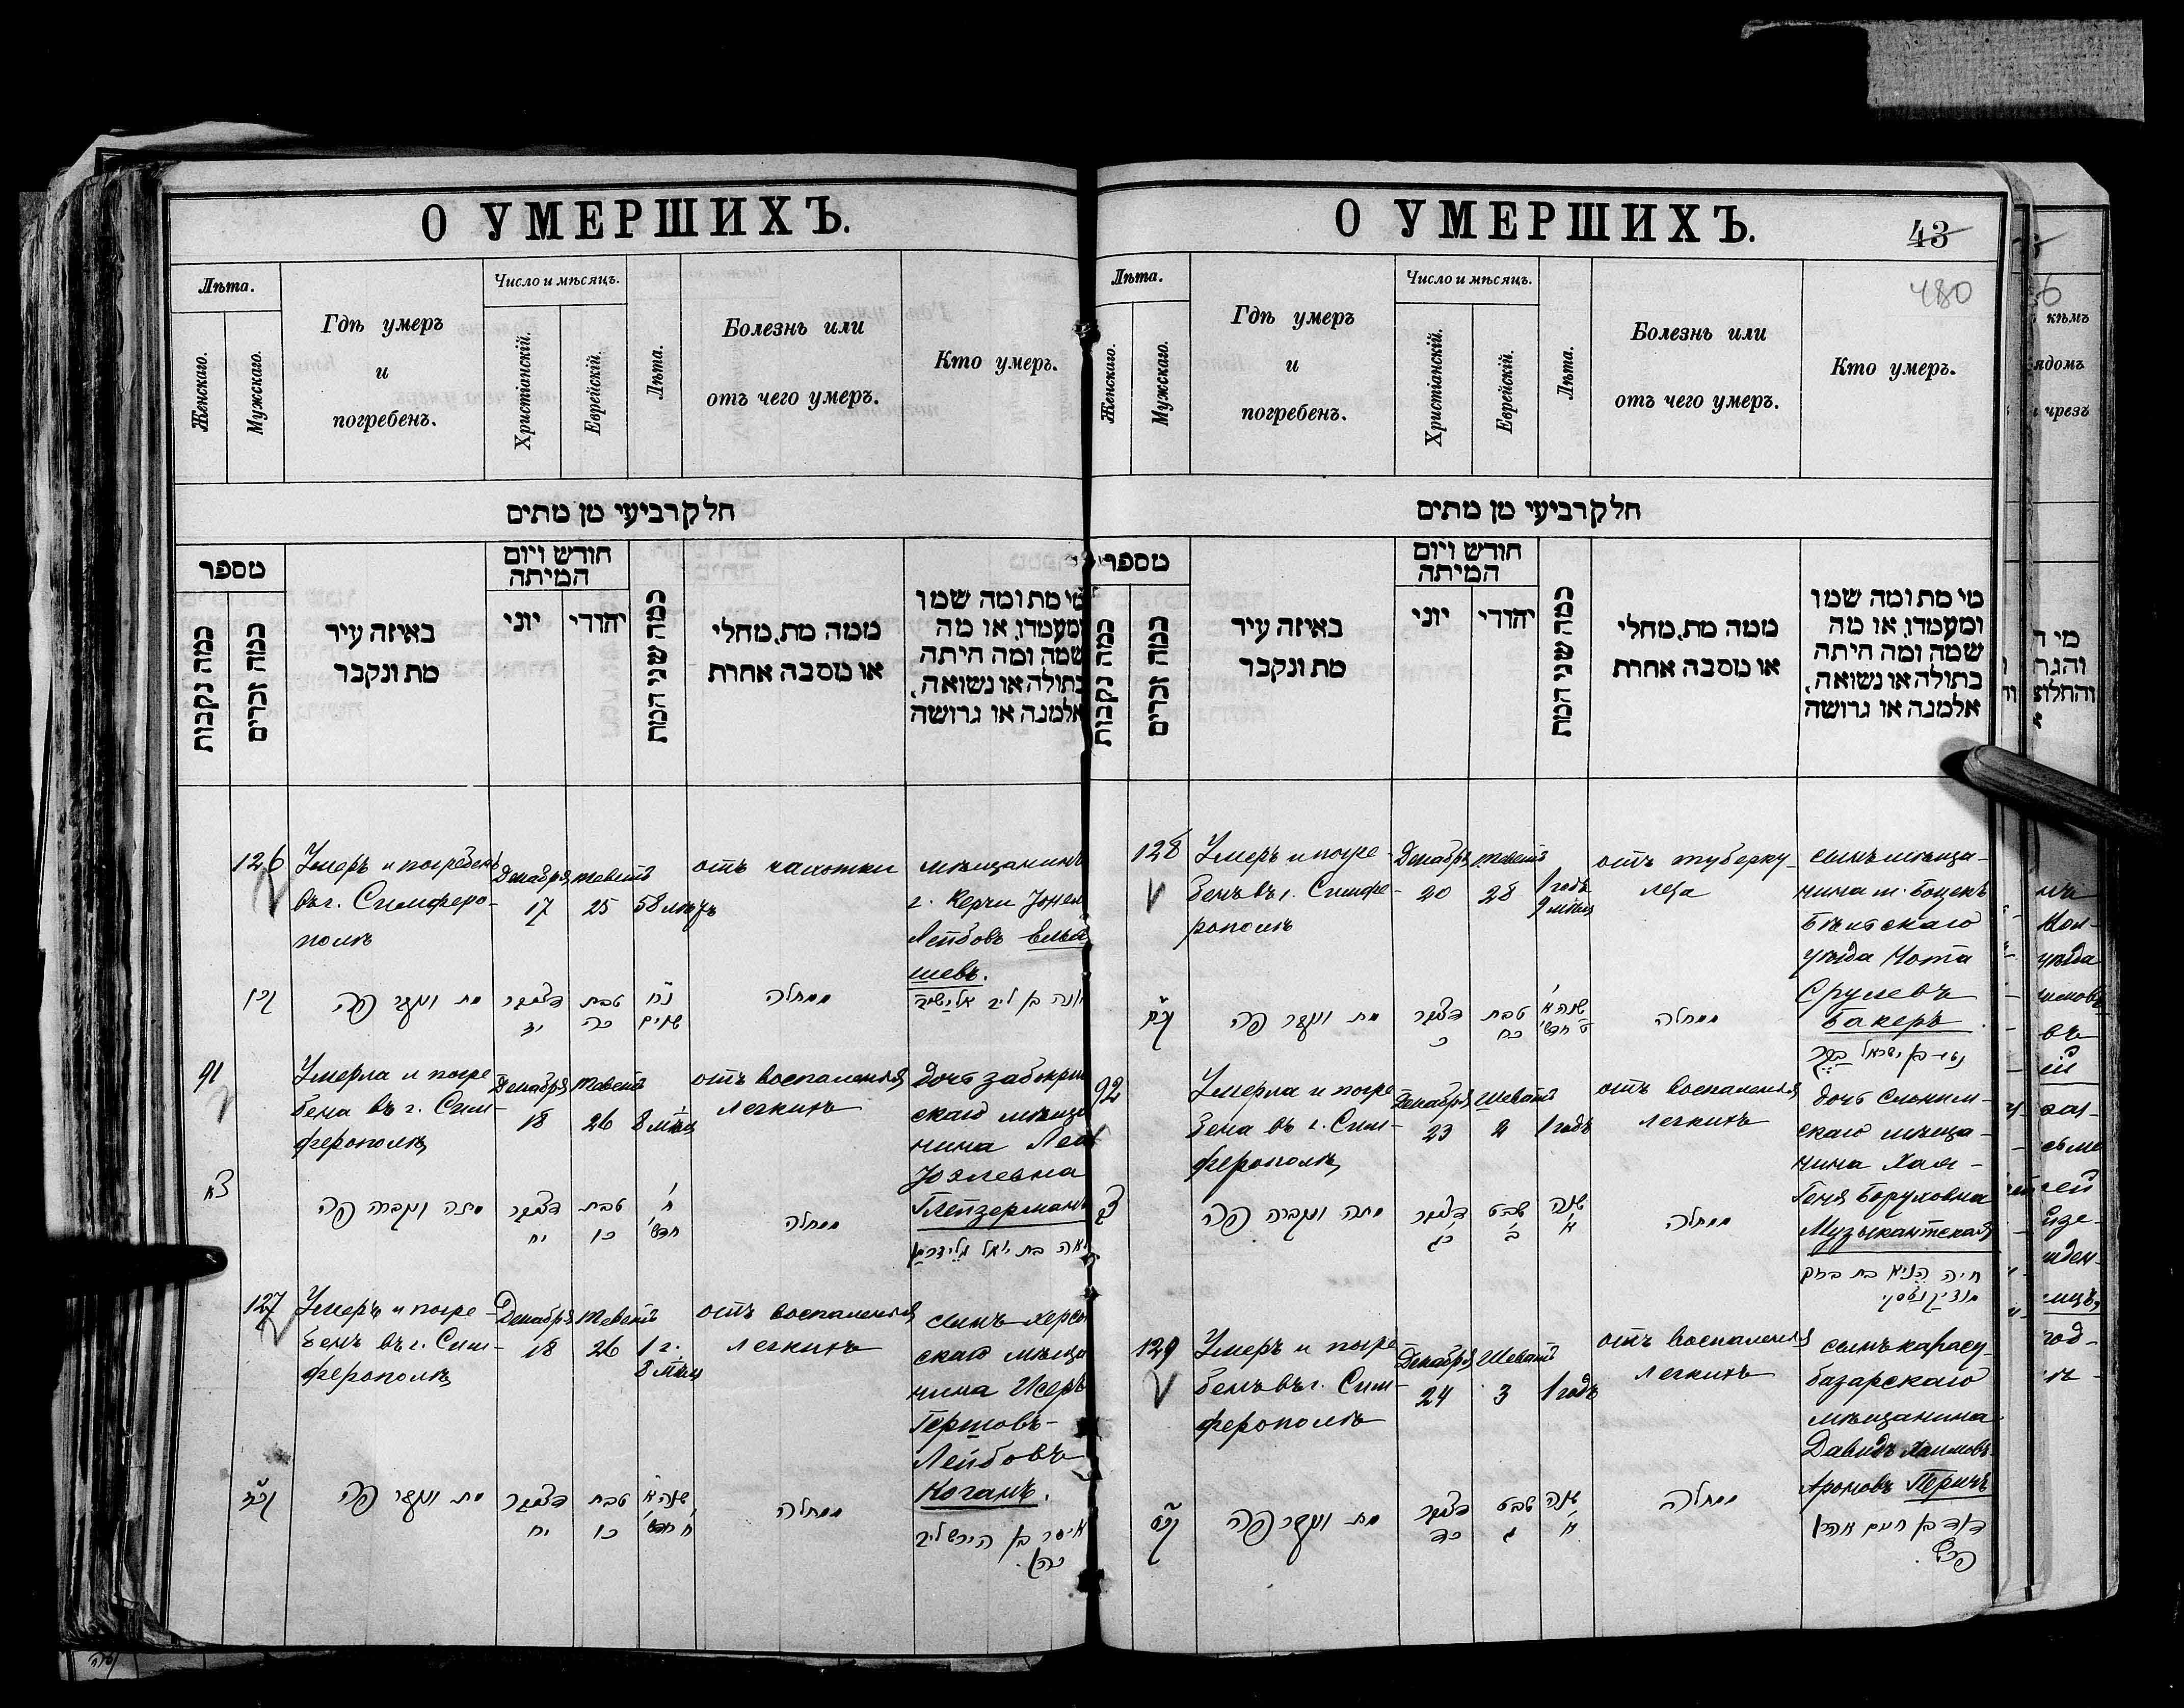 О УМЕРШИХЪ.
Лѣта.
Женскаго.
Мужскаго.
Гдѣ умеръ
и
погребенъ.
Число и мѣсяцъ.
Христіанскій.
Еврейскій.
Лѣта.
Болезнь или
отъ чего умеръ.
Кто умеръ.
חלק רביעי מן מתים
מספר
כמה נקבות
כמה זכרים
באיזה עיר
מת ונקבר
חודש ויום
המיתה
יוני
יהודי
כמה שני המת
ממה מת, מחלי
או מסבה אחרת
מי מת ומה שמו
ומעמדו, או מה
שמה ומה היתה
בתולה או נשואה,
אלמנה או גרושה
126
Умеръ и погребенъ
въ г. Симферо-
полѣ
Декабря
17
Теветъ
25
58 лѣтъ
отъ чахотки
мѣщанинъ
г. Керчи
Лейбовъ
шевъ.
קכו
מת ונקבר פה
דצמבר
יז
טבת
כה
נח
שנים
ממחלה
יונה בן ליב
91
Умерла и погре
бена въ г. Сим-
ферополѣ
Декабря
18
Теветъ
26
8 мѣсц
отъ воспаленія
легкихъ
дочь
скаго
нина
Іоэлевна
Глейзерманъ
צא
מתה ונקברה פה
דצמבר
יח
טבת
כו
ח
חדש'
ממחלה
לאה בת יואל
127
Умеръ и погре-
бенъ въ г. Сим-
ферополѣ
Декабря
18
Теветъ
26
1 г.
8 мѣсц
отъ воспаленія
легкихъ
сынъ херсо
скаго мѣща
нина Исеръ
Гершовъ-
Лейбовъ
Коганъ.
קכז
מת ונקבר פה
דצמבר
יח
טבת
כו
שנה א
ח חדש'
ממחלה
איסר בן הירש ליב
כהן.
О УМЕРШИХЪ.
43
480
Лѣта.
Женскаго.
Мужскаго.
Гдѣ умеръ
и
погребенъ.
Число и мѣсяцъ.
Христіанскій.
Еврейскій.
Лѣта.
Болезнь или
отъ чего умеръ.
Кто умеръ.
חלק רביעי מן מתים
מספר
כמה נקבות
כמה זכרים
באיזה עיר
מת ונקבר
חודש ויום
המיתה
יוני
יהודי
כמה שני המת
ממה מת, מחלי
או מסבה אחרת
מי מת ומה שמו
ומעמדו, או מה
שמה ומה היתה
בתולה או נשואה,
אלמנה או גרושה
128
Умеръ и погре-
бенъ въ г. Симфе-
рополѣ
Декабря
20
Теветъ
28
1 годъ
9 мѣсяц
отъ туберку-
леза
сынъ мѣща-
нина м. Боцекъ
Бѣльскаго
уѣзда Нота
Срулевъ
Бакеръ
קכח
מת ונקבר פה
דצמבר
כ
טבת
כח
שנה א
ט חדש'
ממחלה
בן ישראל
92
Умерла и погре
бена въ г. Сим-
ферополѣ
Декабря
23
Шеватъ
2
1 годъ
отъ воспаленія
легкихъ
дочь слоним-
скаго мѣща-
нина Хая-
Геня Боруховна
Музыкантская
צב
מתה ונקברה פה
דצמבר
כג
שבט
ב
שנה
א
ממחלה
חיה העניא בת ברוך
129
Умеръ и погре
бенъ въ г. Сим-
ферополѣ
Декабря
24
Шеватъ
3
1 годъ
отъ воспаленія
легкихъ
сынъ карасу-
базарскаго
мѣщанина
Давидъ Хаимовъ-
Ароновъ Перичъ
קכט
מת ונקבר פה
דצמבר
כד
שבט
ג
שנה
א
ממחלה
דוד בן חיים אהרן